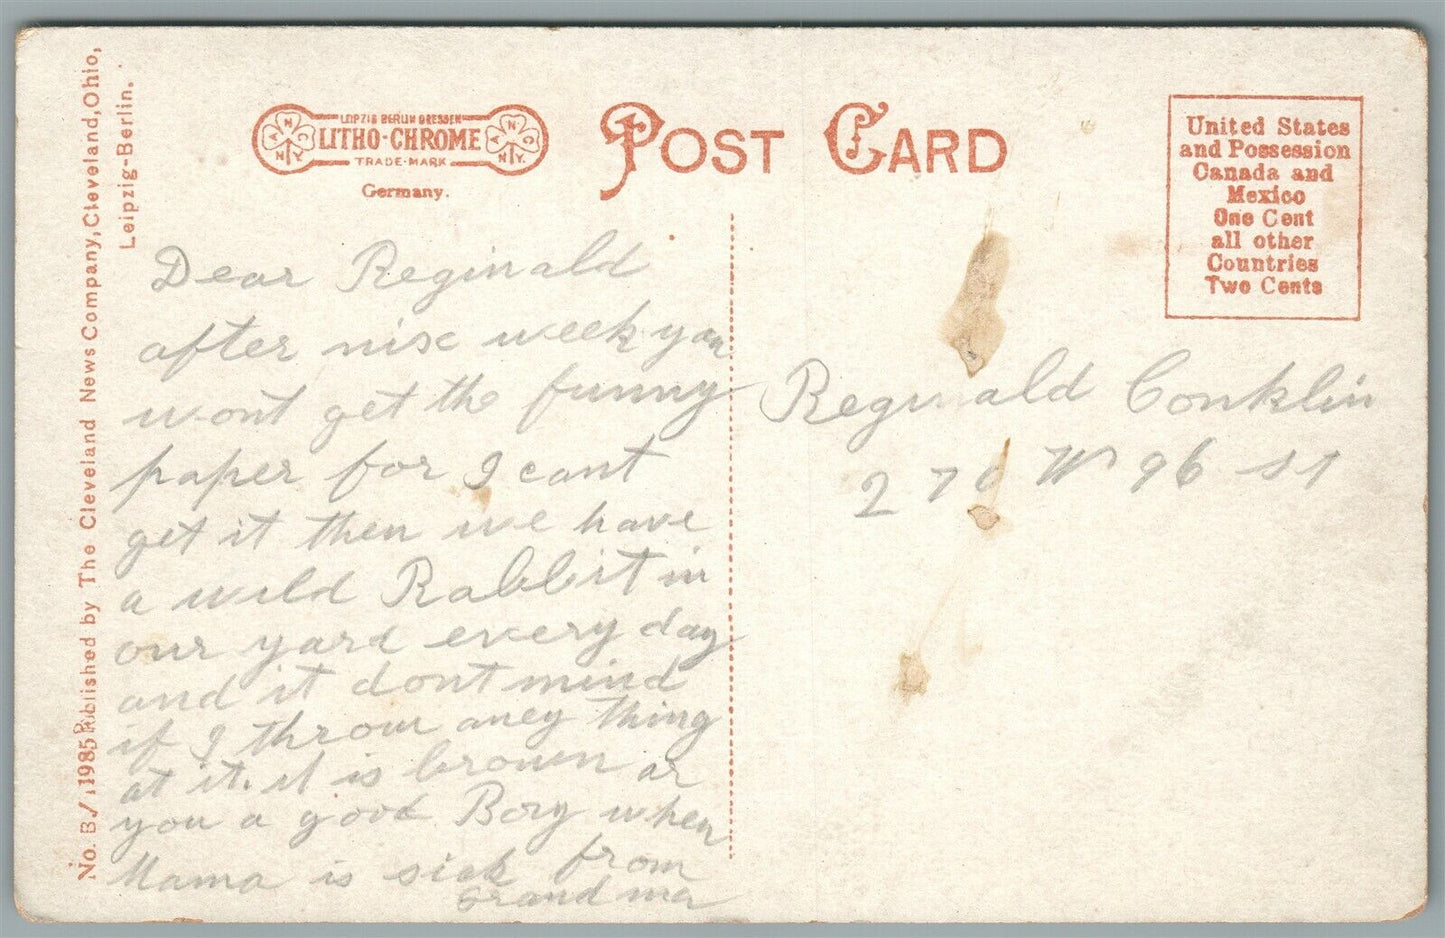 No. B/1985 Published by The Cleveland News Company, Cleveland, Ohio,
Leipzig-Berlin.
LEIPZIG BERLIN DRESSEN
LITHO-CHROME
TRADE-MARK
ANC
N.Y.
ANC
N.Y.
Germany.
POST CARD
United States
and Possession
Canada and
Mexico
One Cent
all other
Countries
Two Cents
Dear Reginald
after nise week you
wont get the funny
paper for I cant
get it then we have
a wild Rabbit in
our yard every day
and it dont mind
if I throw aney thing
at it. it is brown ar
you a good Boy when
Mama is sick from
Grand ma
Reginald Conklin
270 W 96 St